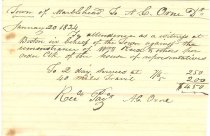 Town of Marblehead To A. C. Orne Dr
January 20 1824
To attendance as a witness at
Boston in behalf of the Town against the
remonstrance of Wm Reed & others from
order Ctte of the house of representatives
To 2 day
250
40 Miles Travel
200
$4.50
Rec'd Pay
A. C. Orne